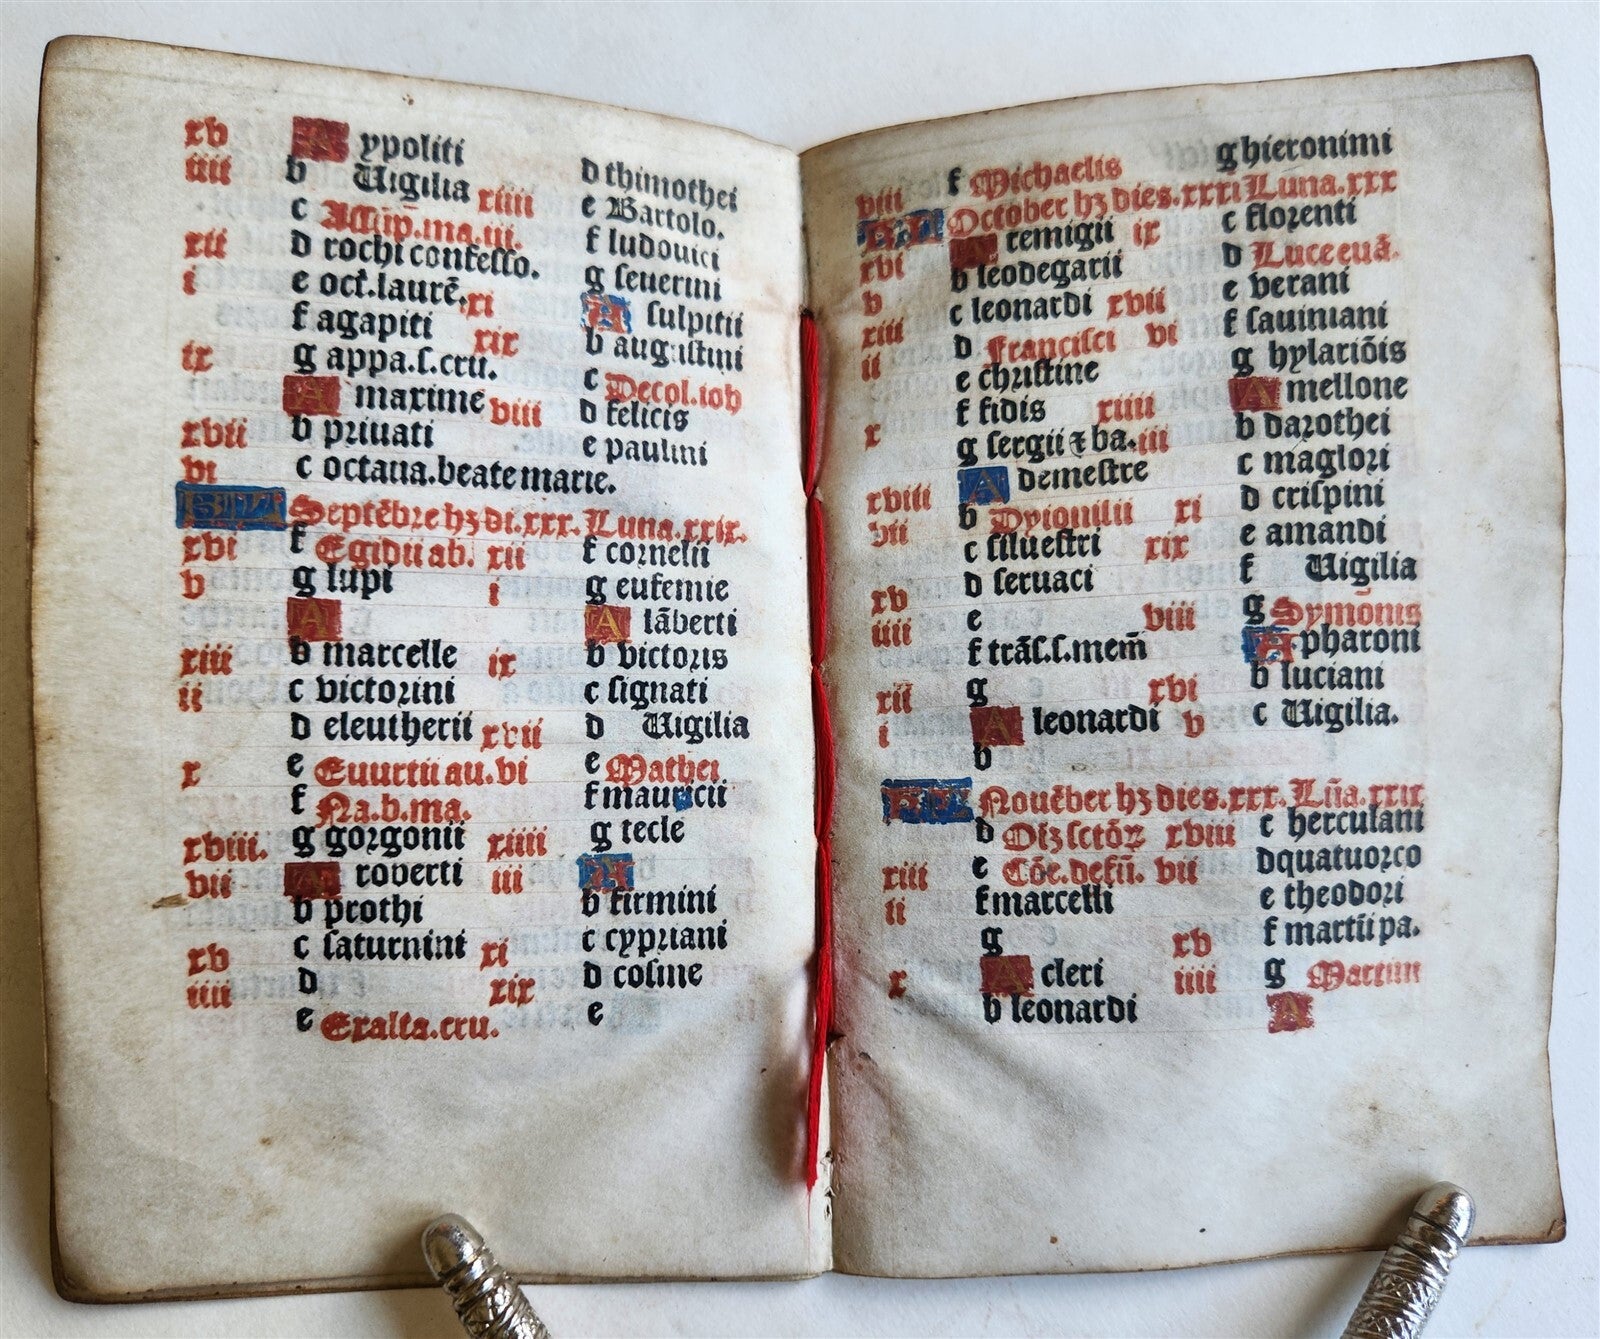 xv A ypoliti
iiii b Uigilia
c Assūp.ma.iii.
xii d rochi confesso.
i e oct.laurē.
f agapiti
ix g appa.s.cru.
A maxime
xvii b priuati
vi c octaua.beate marie.
xiiii d thimothei
iii. e Bartolo.
f ludouici
g seuerini
xi A sulpitii
xix b augustini
c Decol.ioh
viii d felicis
e paulini
Septēbre hʒ di.xxx. Luna.xxix.
xvi f Egidii ab.
v g lupi
A
xiii b marcelle
ii c victorini
d eleutherii
x e Euurtii au.
f Na.b.ma.
xviii. g gorgonii
vii A roberti
b prothi
xv c saturnini
iiii d
e Exalta.cru.
xii f cornelii
i g eufemie
A lāberti
ix b victoris
c signati
xvii d Uigilia
vi e Mathei
f mauricii
xiiii g tecle
iii A
b firmini
xi c cypriani
xix d cosme
e
viii f Michaelis
g hieronimi
KL October hʒ dies.xxxi Luna.xxx
xvi A remigii
v b leodegarii
xiii c leonardi
ii d Francisci
e christine
f fidis
x g sergii ⁊ ba.
A demestre
xviii b Dyionisii
vii c siluestri
d seruaci
xv e
iiii f trās.s.mem̄
xii g
i A leonardi
b
ix c florenti
d Luce euā.
xvii e verani
vi f sauiniani
g hylariōis
xiiii A mellone
iii b darothei
c maglori
xi d crispini
xix e amandi
f Uigilia
viii g Symōnis
A pharoni
xvi b luciani
v c Uigilia.
KL Nouēber hʒ dies.xxx. Lūa.xxix
d Oīʒ sctōꝝ
xiii e Cōe.defū.
ii f marcelli
g
x A cleri
b leonardi
xviii c herculani
vii d quatuorco
e theodori
xv f martīi pa.
iiii g Martini
A